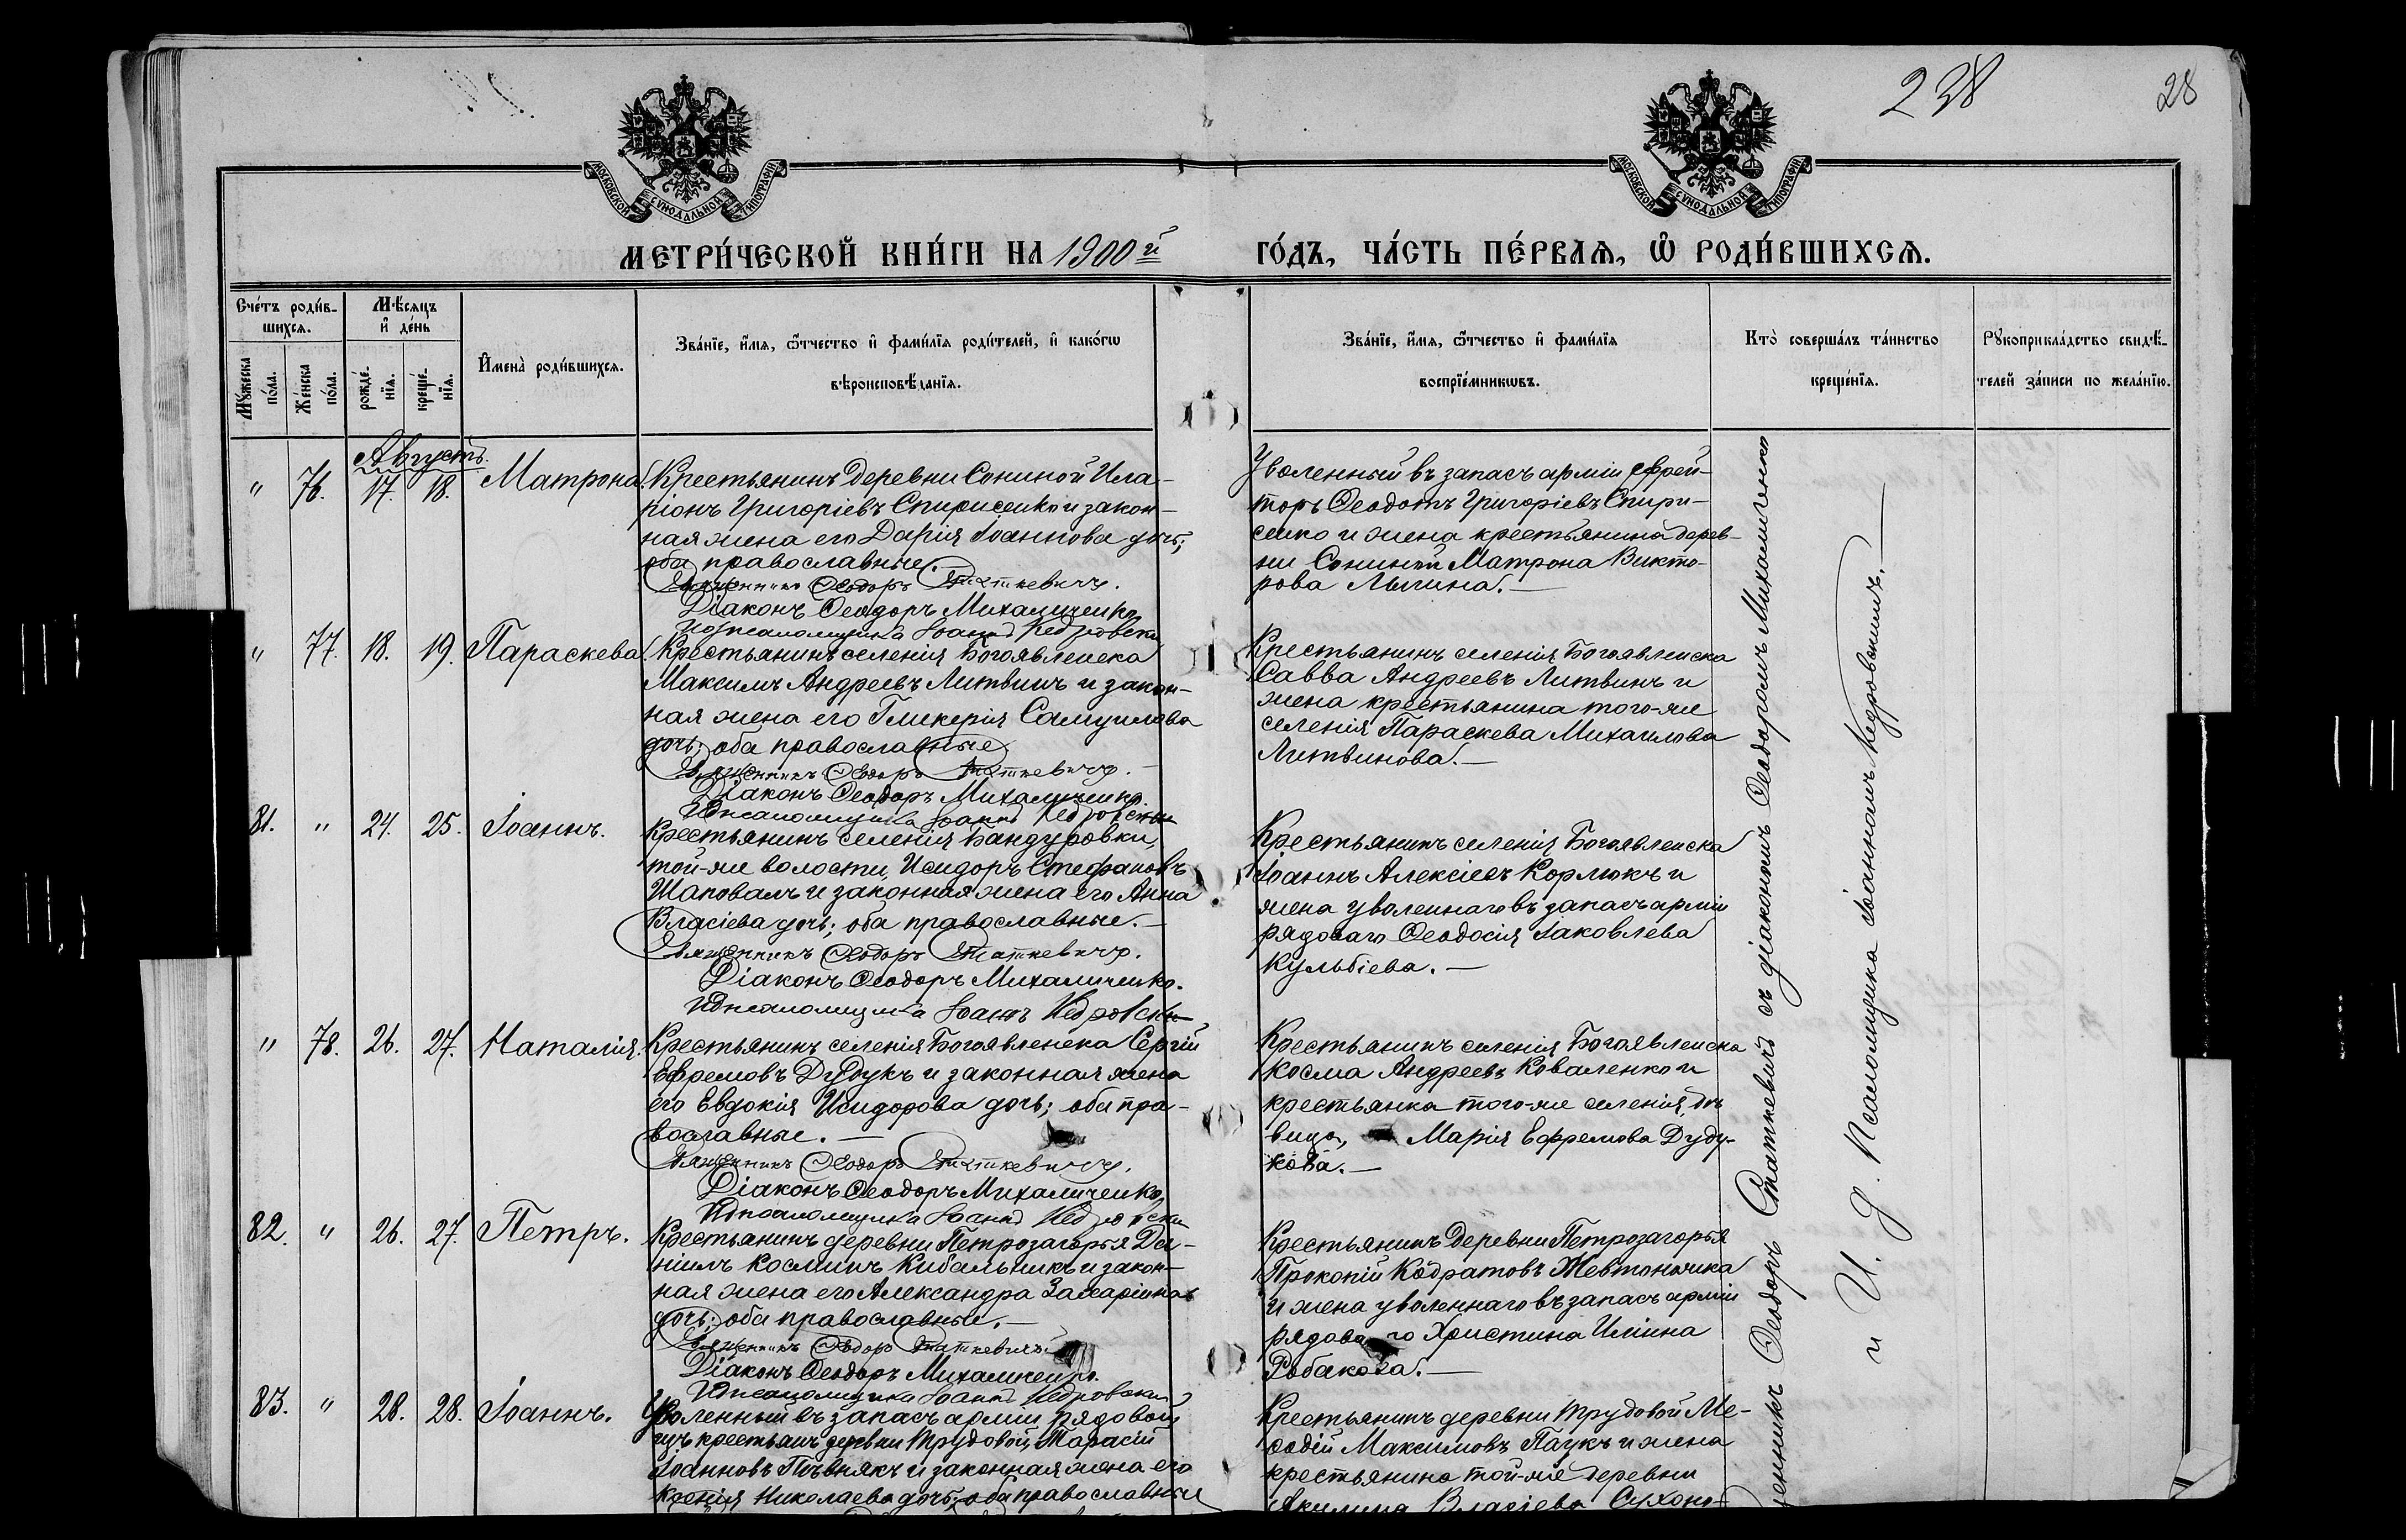 238
28
МОСКОВСКОЙ СѴНОДАЛЬНОЙ ТИПОГРАФІИ
МОСКОВСКОЙ СѴНОДАЛЬНОЙ ТИПОГРАФІИ
МЕТРИ́ЧЕСКОЙ КНИ́ГИ НА 1900й
ГО́ДЪ, ЧА́СТЬ ПЕ́РВАѦ, Ѡ҆ РОДИ́ВШИХСѦ.
Сче́тъ роди́в-
шихсѧ.
Мꙋ́жеска по́ла.
Же́нска по́ла.
Мѣ́сѧцъ
и҆ де́нь
рожде́-
нїѧ.
креще́-
нїѧ.
И҆мена̀ роди́вшихсѧ.
Зва́нїе, и҆́мѧ, ѻ҆́тчество и҆ фами́лїѧ роди́телей, и҆ како́гѡ
вѣроисповѣ́данїѧ.
Зва́нїе, и҆́мѧ, ѻ҆́тчество и҆ фами́лїѧ
воспрїе́мникѡвъ.
Кто̀ соверша́лъ та́инство
креще́нїѧ.
Рꙋкоприкла́дство свидѣ́-
телей за́писи по жела́нїю.
Августъ.
" 76. 17. 18. Матрона.
Крестьянинъ деревни Сониной Ила-
ріонъ Григоріевъ Спирисенко и закон-
ная жена его Дарія Іоаннова дочь;
оба православные.
Священникъ Ѳеодоръ Статкевичъ.
Діаконъ Ѳеодоръ Михаличенко
Псаломщика Іоаннъ Кедровскій
Уволенный въ запасъ арміи ефрей-
торъ Ѳеодотъ Григоріевъ Спири-
сенко и жена крестьянина дерев-
ни Сониной Матрона Викто-
рова Лычина.—
" 77. 18. 19. Параскева.
Крестьянинъ селенія Богоявленска
Максимъ Андреевъ Литвинъ и закон-
ная жена его Гликерія Самуилова
дочь; оба православные
Священникъ Ѳеодоръ Статкевичъ.
Діаконъ Ѳеодоръ Михаличенко.
Псаломщика Іоаннъ Кедровскій
Крестьянинъ селенія Богоявленска
Савва Андреевъ Литвинъ и
жена крестьянина того-же
селенія Параскева Михаилова
Литвинова.—
81. " 24. 25. Іоаннъ.
Крестьянинъ селенія Бандуровки,
той-же волости, Исидоръ Стефановъ
Шаповалъ и законная жена его Анна
Власіева дочь; оба православные.—
Священникъ Ѳеодоръ Статкевичъ.
Діаконъ Ѳеодоръ Михаличенко.
Псаломщика Іоаннъ Кедровскій
Крестьянинъ селенія Богоявленска
Іоаннъ Алексіевъ Кормокъ и
жена уволеннаго въ запасъ арміи
рядоваго Ѳеодосія Іаковлева
Кульбіева.—
" 78. 26. 27. Наталія.
Крестьянинъ селенія Богоявленска Сергій
Ефремовъ Дудукъ и законная жена
его Евдокія Исидорова дочь; оба пра-
вославные.—
Священникъ Ѳеодоръ Статкевичъ.
Діаконъ Ѳеодоръ Михаличенко.
Псаломщика Іоаннъ Кедровскій
Крестьянинъ селенія Богоявленска
Косма Андреевъ Коваленко и
крестьянка того-же селенія, дѣ-
вица, Марія Ефремова Дуду-
кова.—
82. " 26. 27. Петръ.
Крестьянинъ деревни Петрозагорья Да-
ніилъ Косминъ Кибальникъ и закон-
ная жена его Александра Захаріина
дочь; оба православные.—
Священникъ Ѳеодоръ Статкевичъ.
Діаконъ Ѳеодоръ Михаличенко.
Псаломщика Іоаннъ Кедровскій
Крестьянинъ деревни Петрозагорья
Прокопій Кодратовъ Жевтоножка
и жена уволеннаго въ запасъ арміи
рядоваго Христина Иліина
Робакова.—
83. " 28. 28. Іоаннъ.
Уволенный въ запасъ арміи рядовой
изъ крестьянъ деревни Трудовой, Тарасій
Іоанновъ Пѣвнякъ и законная жена его
Ксенія Николаева дочь; оба православные
Крестьянинъ деревни Трудовой Ме-
ѳодій Максимовъ Паукъ и жена
крестьянина той-же деревни
Акилина Власіева Сухоно-
Священникъ Ѳеодоръ Статкевичъ съ діакономъ Ѳеодоромъ Михаличенко
и И. д. Псаломщика Іоанномъ Кедровскимъ.—